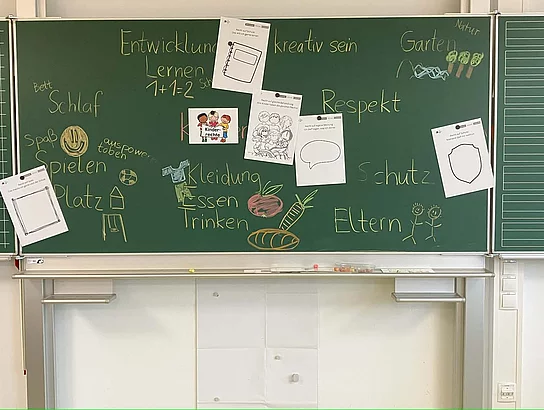 Entwicklung
Lernen
1+1=2
kreativ sein
Garten
Natur
Bett
Schlaf
Kinder-
rechte
Respekt
Spaß
auspowern
toben
Spielen
Platz
Kleidung
Essen
Trinken
Schutz
Eltern